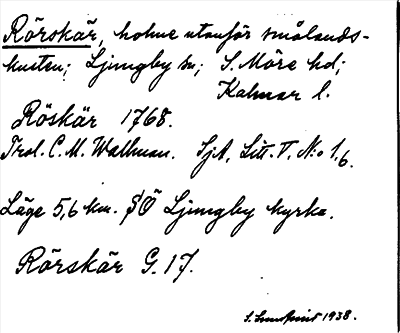 Rörskär, holme utanför smålands-
kusten; Ljungby sn; S. Möre hd;
Kalmar l.
Röskär 1768.
Trol. C. M. Wallman. SjA, Litt. T, N:o 1,6.
Läge 5,6 km. SÖ Ljungby kyrka.
Rörskär G. 17.
S. 1938.